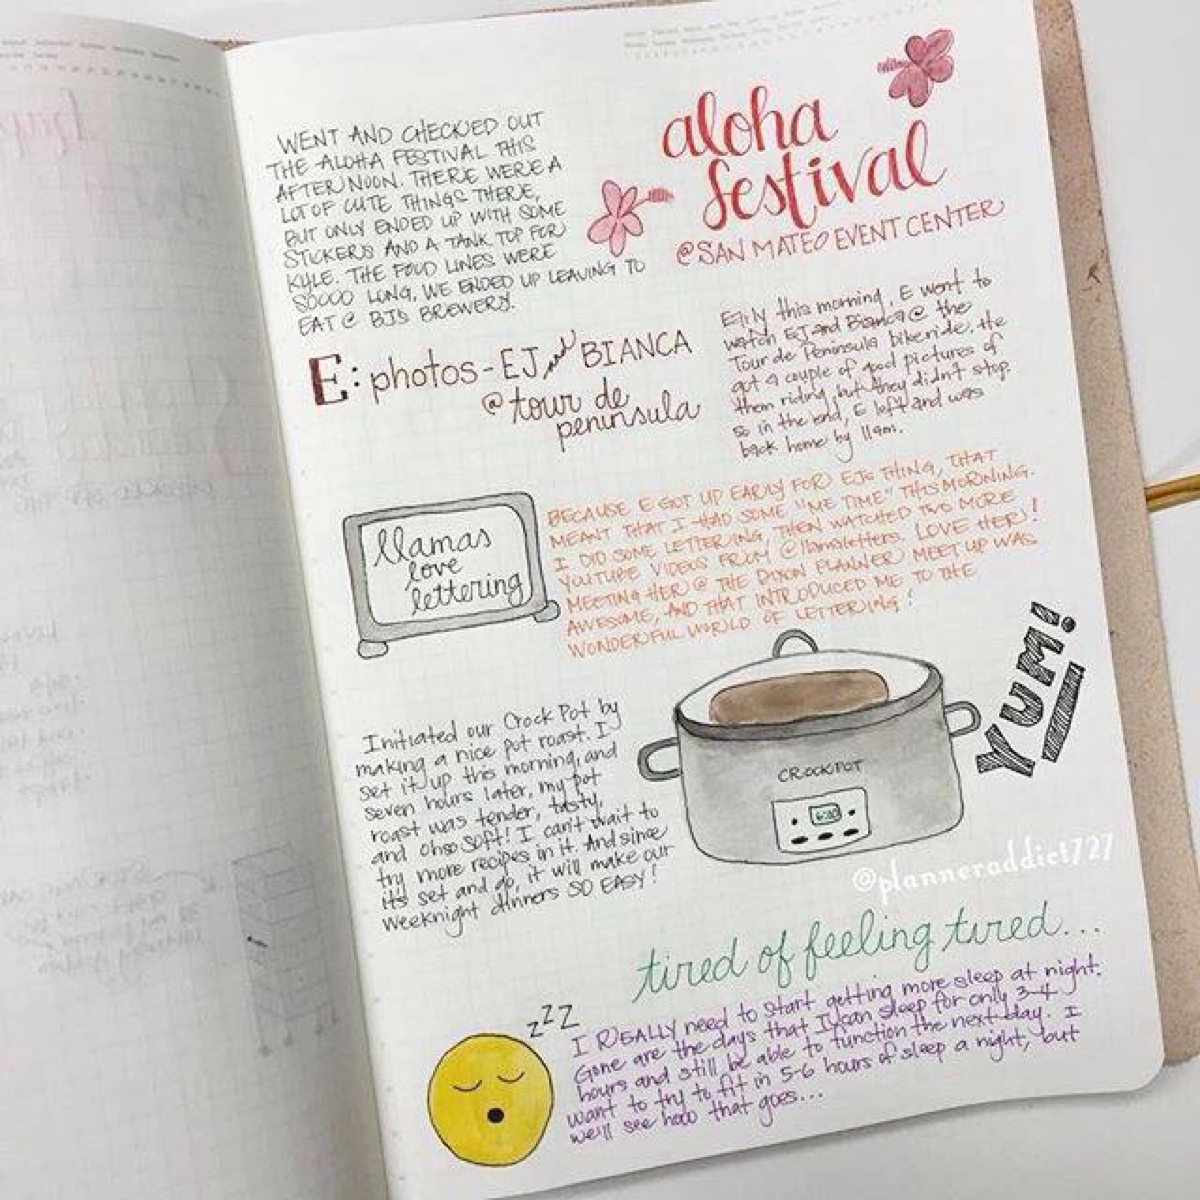 WENT AND CHECKED OUT
THE ALOHA FESTIVAL THIS
AFTERNOON. THERE WERE A
LOT OF CUTE THINGS THERE,
BUT ONLY ENDED UP WITH SOME
STICKERS AND A TANK TOP FOR
KYLE. THE FOOD LINES WERE
SOOOO LONG, WE ENDED UP LEAVING TO
EAT @ BJS BREWERY.
aloha
festival
@SAN MATEO EVENT CENTER
E: photos - EJ and BIANCA
@ tour de
peninsula
Early this morning, E went to
watch EJ and Bianca @ the
Tour de Peninsula bikeride. He
got a couple of good pictures of
them riding, but they didn't stop.
So in the end, E left and was
back home by 11am.
llamas
love
lettering
BECAUSE E GOT UP EARLY FOR EJS THING, THAT
MEANT THAT I HAD SOME "ME TIME" THIS MORNING.
I DID SOME LETTERING, THEN WATCHED TWO MORE
YOUTUBE VIDEOS FROM @llamaletters. LOVE HER!
MEETING HER @ THE DIXON PLANNER MEET UP WAS
AWESOME, AND THAT INTRODUCED ME TO THE
WONDERFUL WORLD OF LETTERING!
Initiated our Crock Pot by
making a nice pot roast. I
set it up this morning, and
seven hours later, my pot
roast was tender, tasty,
and ohso soft! I can't wait to
try more recipes in it. And since
it's set and go, it will make our
weeknight dinners SO EASY!
YUM!
CROCKPOT
6:00
@planneraddict727
tired of feeling tired...
zzZ
I REALLY need to start getting more sleep at night.
Gone are the days that I can sleep for only 3-4
hours and still be able to function the next day. I
want to try to fit in 5-6 hours of sleep a night, but
we'll see how that goes...